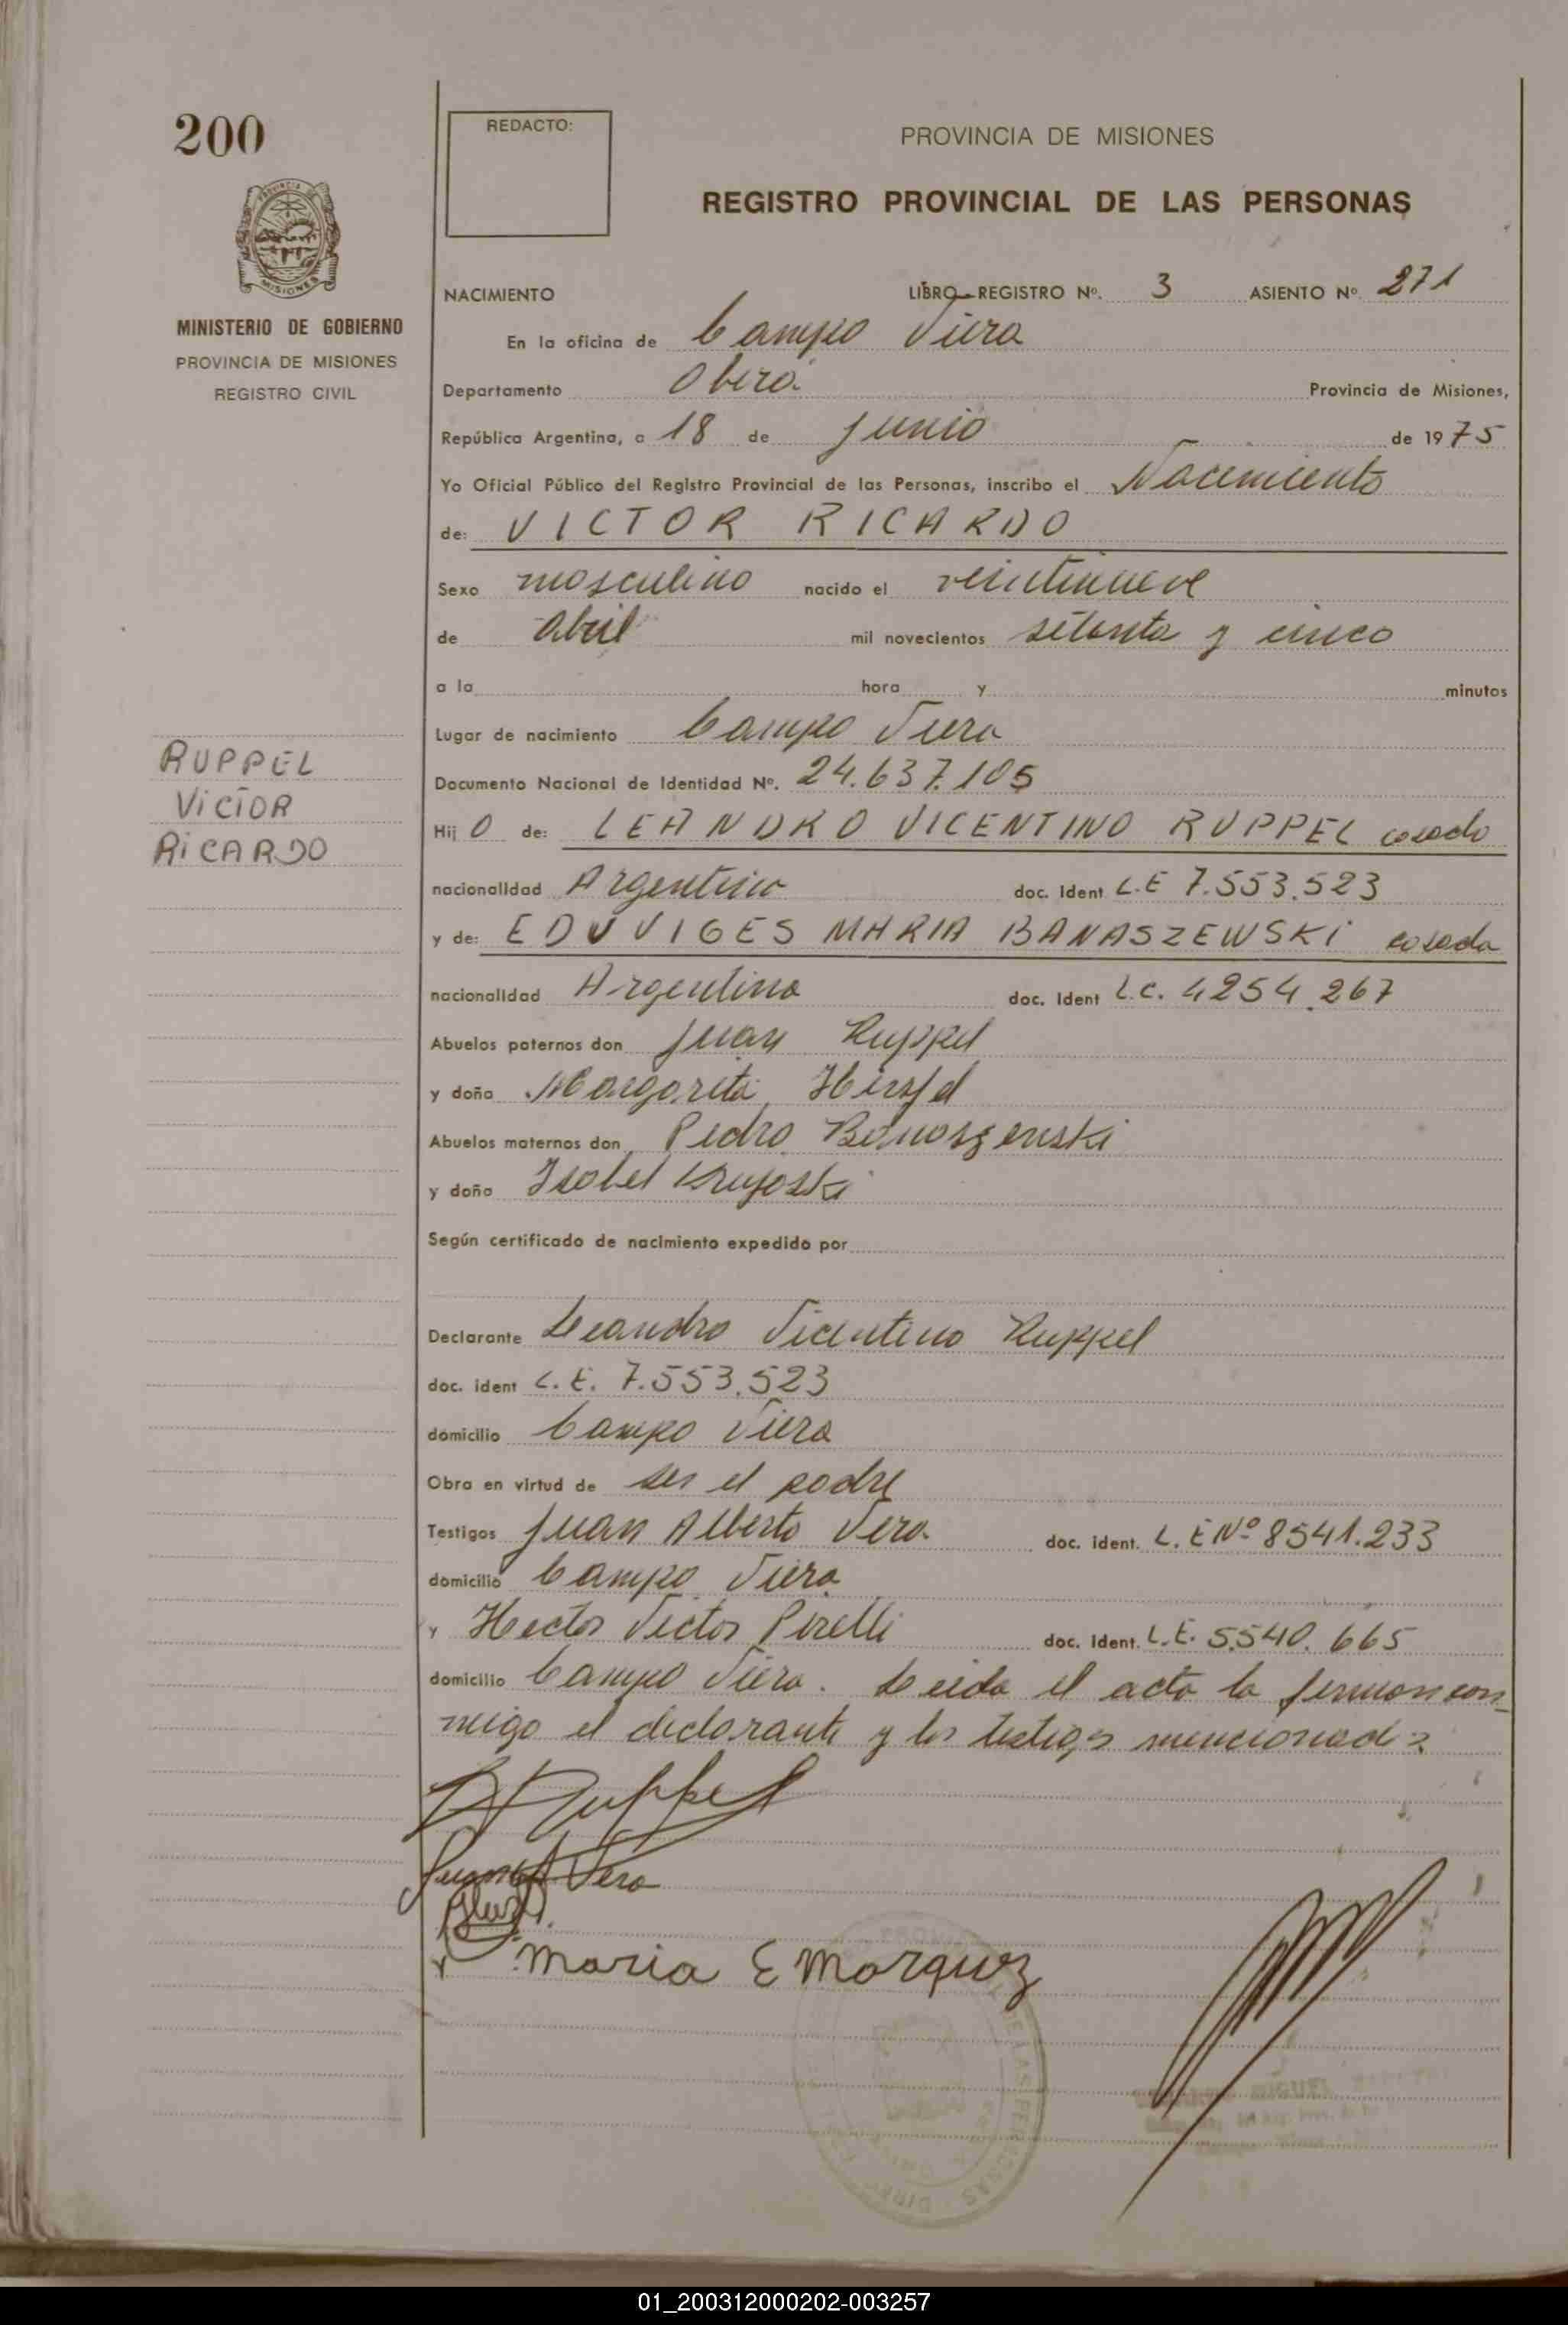 200
REDACTO:
PROVINCIA DE MISIONES
REGISTRO PROVINCIAL DE LAS PERSONAS
MISIONES
MINISTERIO DE GOBIERNO
PROVINCIA DE MISIONES
REGISTRO CIVIL
NACIMIENTO LIBRO-REGISTRO Nº. 3 ASIENTO Nº. 271
En la oficina de Campo Viera
Departamento Oberá Provincia de Misiones,
República Argentina, a 18 de junio de 1975
Yo Oficial Público del Registro Provincial de las Personas, inscribo el Nacimiento
de: VICTOR RICARDO
Sexo masculino nacido el veintinueve
de Abril mil novecientos setenta y cinco
a la hora y minutos
Lugar de nacimiento Campo Viera
Documento Nacional de Identidad Nº. 24.637.105
RUPPEL
VICTOR
RICARDO
Hij O de: LEANDRO VICENTINO RUPPEL casado
nacionalidad Argentino doc. Ident L.E 7.553.523
y de: EDUVIGES MARIA BANASZEWSKI casada
nacionalidad Argentina doc. Ident L.C. 4254.267
Abuelos paternos don Juan Ruppel
y doña Margarita
Abuelos maternos don Pedro Banaszewski
y doña Isabel
Según certificado de nacimiento expedido por
Declarante Leandro Vicentino Ruppel
doc. ident L.E. 7.553.523
domicilio Campo Viera
Obra en virtud de ser el padre
Testigos Juan Alberto Vera doc. ident. L.E Nº 8541.233
domicilio Campo Viera
y Hector Victor Pirelli doc. Ident. L.E. 5.540.665
domicilio Campo Viera. Leida el acta la firman con
migo el declarante y los testigos mencionados
Ruppel
Juan A Vera
Maria E Marquez
DE LAS PERSONAS
MIGUEL
01_200312000202-003257